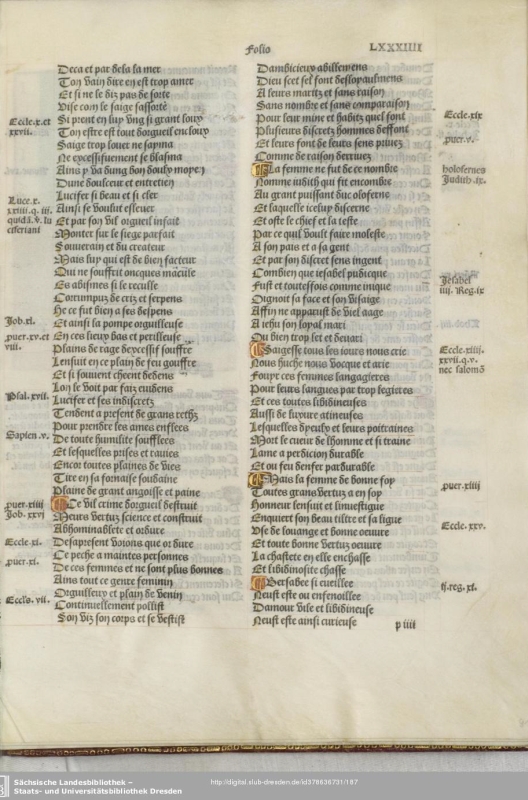 Folio
LXXXIIII
Deca et par dela la mer
Ton vain dire en est trop amer
Et si ne le diz pas de sorte
Si prent en luy vng si grant louy
Ton estre est tout dorgueil en louy
Saige trop louer ne
Ne excessifuement se blasma
Ains y va dung bon
Dune doulceur et entretien
Lucifer si beau et si cler
Ainsi se voulut esleuer
Et par son vil orgueil infait
Monter sur le siege parfait
Souuerain et du createur
Mais luy qui est de bien facteur
Qui ne souffrit oncques macule
Es abismes si le reculle
Corrumpuz de criz et serpens
He ce fut bien a ses despens
Et ainsi la pompe orguilleuse
En ces lieux bas et perilleuse
Plains de rage dexcessif souffre
Lensuit en ce plain de feu gouffre
Et si souuent cheent dedens
Lon le voit par faiz euidens
Lucifer et ses indiscretz
Tendent a present de grans rethz
Pour prendre les ames enflees
De toute humilite soufflees
Et lesquelles prises et rauies
Encor toutes plaines de vies
Tire en sa fornaise soubaine
Plaine de grant angoisse et paine
Ce vil crime dorgueil destruit
Meurs vertuz science et construit
Abhominablete et ordure
Desapresent voions que or dure
Ce peche a maintes personnes
De ces femmes et ne sont plus bonnes
Ains tout ce genre feminin
Orguilleux et plain de venin
Continuellement pollist
Son viz son corps et se vestist
Eccle.x.et
xxvii.
Luce.x.
xxiiii.q. iii.
ciferiani
Job.xl.
.puer.xv.et
viii.
Psal.xvii.
Sapien.v.
.puer.xiiii
Job.xxvi
Eccle.xi.
.puer.xi.
Eccls.vii.
Dambicieux abillemens
Dieu scet sel sont
A leurs maritz et sans raison
Sans nombre et sans comparaison
Pour leur mine et habitz quel font
Plusieurs discretz hommes deffont
Et leurs sont de leurs sens priuez
Comme de raison
La femme ne fut de ce nombre
Nomme iudith qui fit encombre
Au grant puissant duc oloferne
Et laquelle iceluy discerne
Et oste le chief et la teste
Par ce quil voult faire moleste
A son pais et a sa gent
Et par son discret sens ingent
Combien que iesabel pudicque
Fust et toutesfois comme inique
Oignoit sa face et son visaige
Affin ne apparust de viel aage
A iehu son loyal mari
Ou bien trop let et deuari
Saigesse tous les iours nous crie
Nous huche nous vocque et arie
Fouyr ces femmes langagieres
Pour leurs langues par trop legieres
Et ces toutes libidineuses
Aussi de luxure atineuses
Lesquelles dyeulx et leurs poitraines
Mort le cueur de lhomme et si traine
Lame a perdicion durable
Et ou feu denfer pardurable
Mais la femme de bonne foy
Toutes grans vertuz a en soy
Honneur lensuit et
Enquiert son beau tiltre et sa ligue
Vse de louange et bonne oeuure
Et toute bonne vertuz oeuure
La chastete en elle enchasse
Et libidinosite chasse
Bersabee si cueillee
Neust este ou ensenoillee
Damour vile et libidineuse
Neust este ainsi curieuse
p iiii
Eccle.xix
.puer.v.
holofernes
Judith.ix.
Jesabel
iiij.Reg.ix
Eccle.xiiij.
xxvii.q.v.
nec salomō
.puer.xiii
Eccle.xxv.
ij.reg.xi.
Sächsische Landesbibliothek –
Staats- und Universitätsbibliothek Dresden
http://digital.slub-dresden.de/id378636731/187